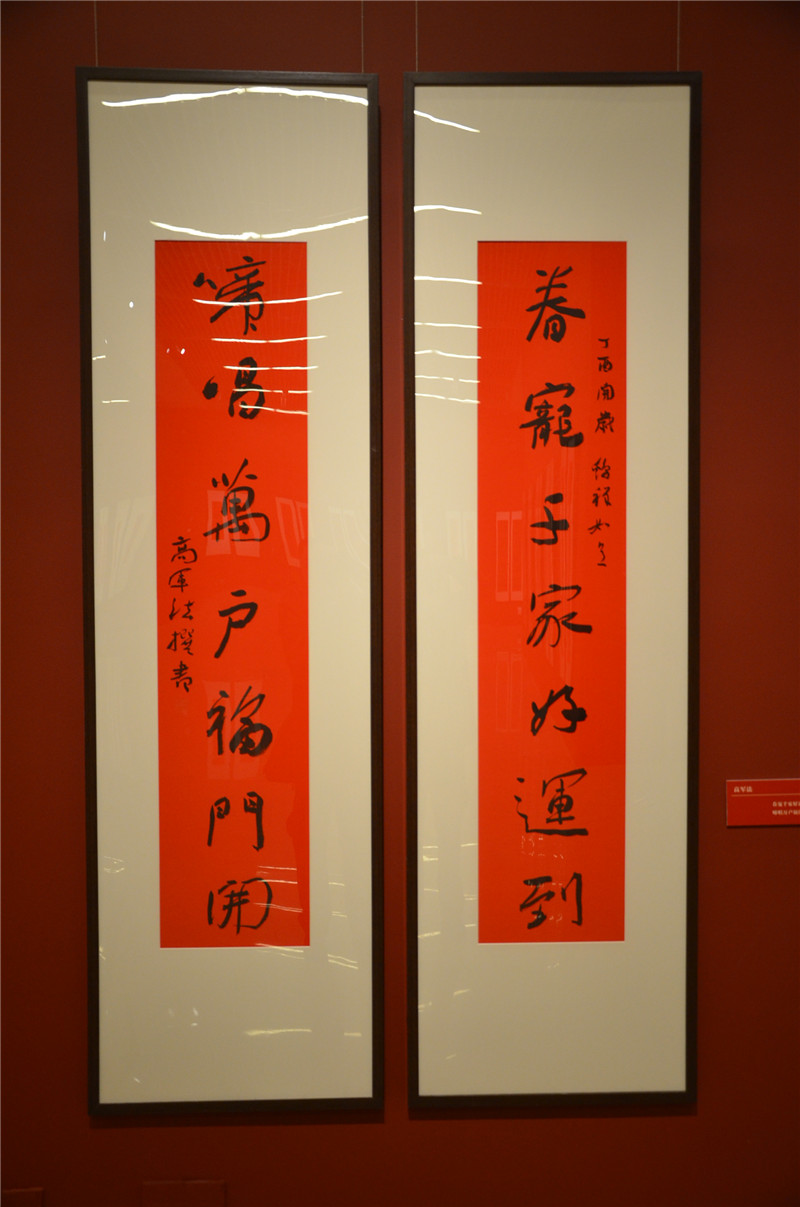 眷寵千家好運到
丁酉開歲 如意
啼唱萬戶福門開
高軍法撰書
高军法